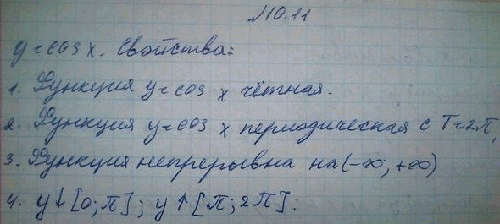 М10.11
y = cos x. Свойства:
1. Функция y = cos x чётная.
2. Функция y = cos x периодическая с T = 2π.
3. Функция непрерывна на (-∞, +∞)
4. y↓[0; π]; y↑[π; 2π].